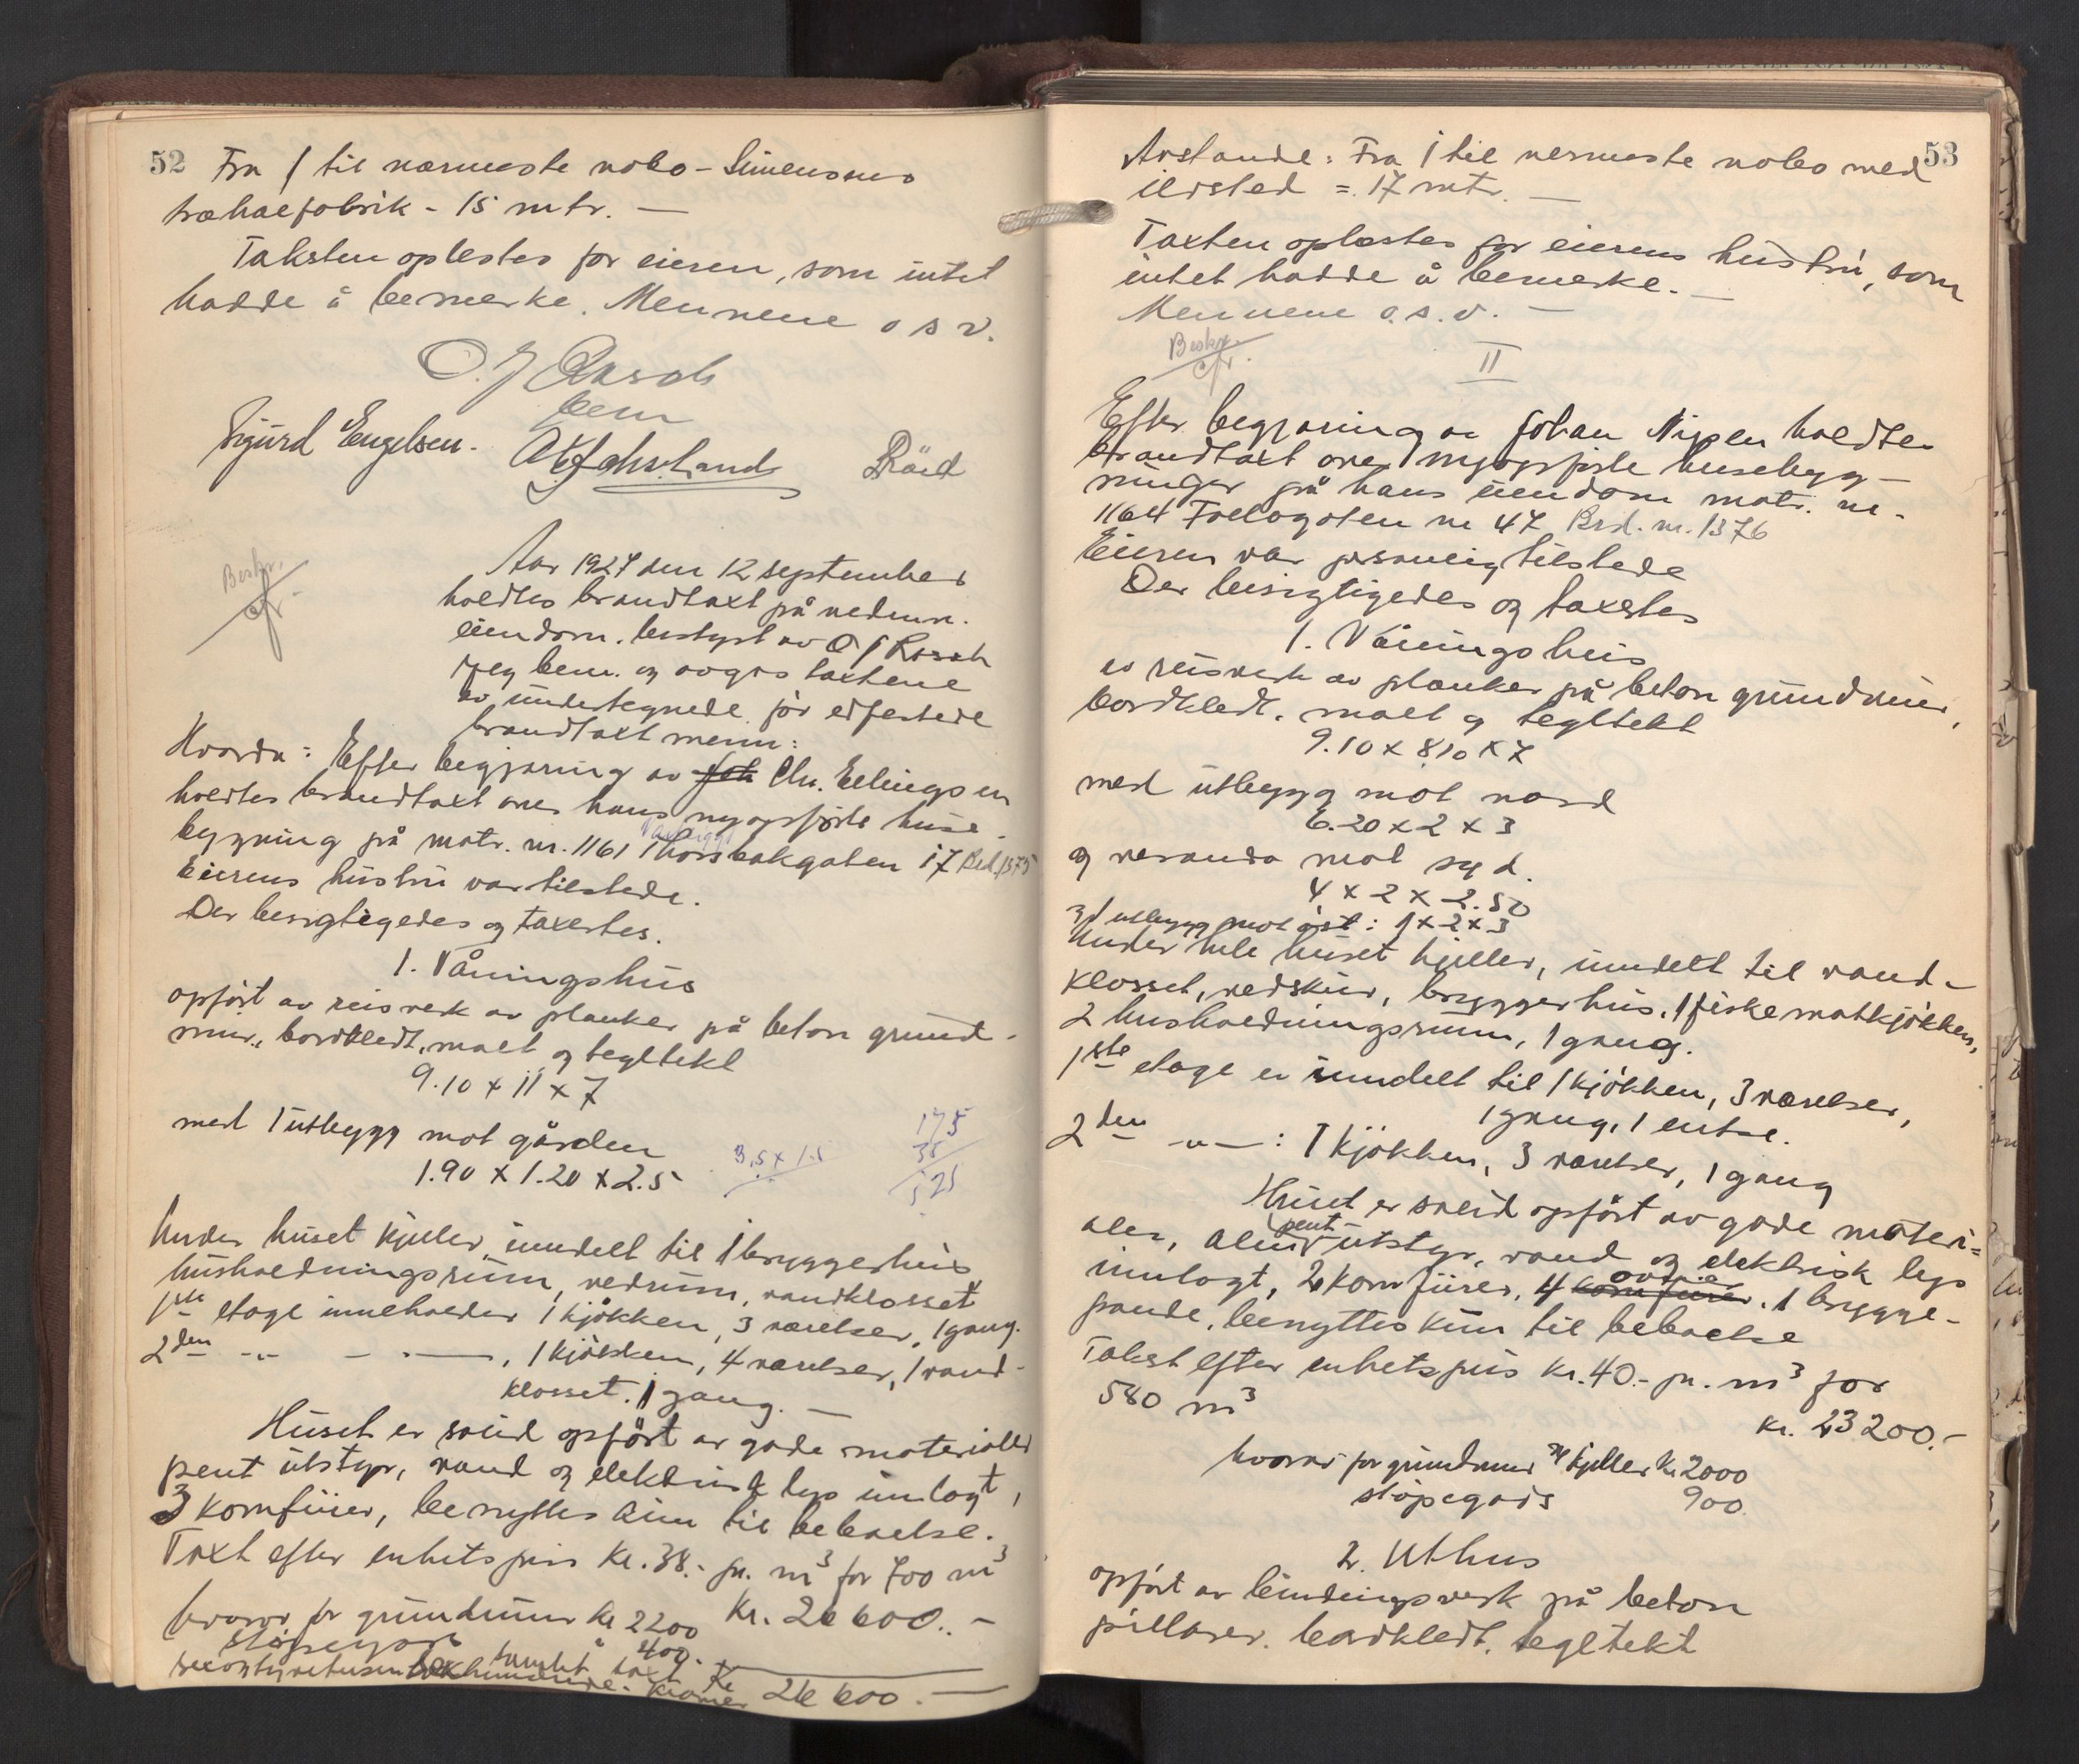 52 Fra 1 til nærmeste nabo - Simensens
træhælfabrik - 15 mtr. —
Taksten oplestes for eieren, som intet
hadde å bemerke. Mennene o s v.
O. J Rasch
bem
Sigurd Engelsen. Bård
Beskr.
afr.
Aar 1927 den 12 september
holdtes brandtaxt på nedenn.
eiendom. bestyrt av O J Rasch
som bem. og avgis taxtene
av undertegnede før edfestede
brandtaxtmenn:
Hvorda: Efter begjæring av Chr. Ellingsen
holdtes brandtaxt over hans nyopførte huse-
bygning på matr. nr. 1161 Thorsbakgaten 17 Brd. 1375
Eierens hustru var tilstede.
Der besigtigedes og taxertes.
1. Våningshus
opført av reisverk av planker på beton grund-
mur, bordkledt, malt og tegltekt
9.10 x 11 x 7
med 1 utbygg mot gården
1.90 x 1.20 x 2.5
3,5 x 1.5
175
35
525
Under huset kjeller, inndelt til 1 bryggerhus
husholdningsrum, vedrum, vandklosset
1ste etage inneholder 1 kjøkken, 3 værelser, 1 gang.
2den -"- — -"- —, 1 kjøkken, 4 værelser, 1 vand-
klosset. 1 gang. —
Huset er solid opført av gode materialer
pent utstyr, vand og elektrisk lys innlagt,
3 komfurer, benyttes kun til beboelse.
Taxt efter enhetspris Kr. 38.- pr. m3 for 700 m3
hvorav for grundmur Kr 2200 Kr. 26 600.. -
støpegods 400.-
samlet taxt Kr
kroner 26 600. —
53
Avstande: Fra 1 til nermeste nabo med
ildsted = 17 mtr. —
Taxten oplæstes for eierens hustru, som
intet hadde å bemerke. —
Mennene o.s.v. —
Beskr.
afr.
II
Efter begjæring av Johan Nipen holdtes
brandtaxt over nyopførte husebyg-
ninger på hans eiendom matr. nr.
1164 Follogaten nr 47 Brd. nr. 1376
Eieren var personlig tilstede
Der besigtigedes og taxertes
1. Våningshus
av reisverk av planker på beton grundmur,
bordkledt, malt og tegltekt
9.10 x 8.10 x 7
med utbygg mot nord
6.20 x 2 x 3
og veranda mot syd.
4 x 2 x 2.50
utbygg mot øst: 1 x 2 x 3
Under hele huset kjeller, inndelt til vand-
klosset, vedskur, bryggerhus, 1 fiskematkjøkken,
2 husholdningsrum, 1 gang.
1ste etage er inndelt til 1 kjøkken, 3 værelser,
1 gang, 1 entre.
2den -"- —: 1 kjøkken, 3 værelser, 1 gang
Huset er solid opført av gode materi-
aler, alm. pent utstyr, vand og elektrisk lys
innlagt, 2 komfurer, 4 ovner komfurer. 1 brygge-
pande, benyttes kun til beboelse
Takst efter enhetspris Kr. 40.- pr. m3 for
580 m3
Kr. 23 200.-
hvorav for grundmur og kjeller Kr 2000
støpegods 900.
2. Uthus
opført av bindingsverk på beton
pillarer. bordkledt. tegltekt